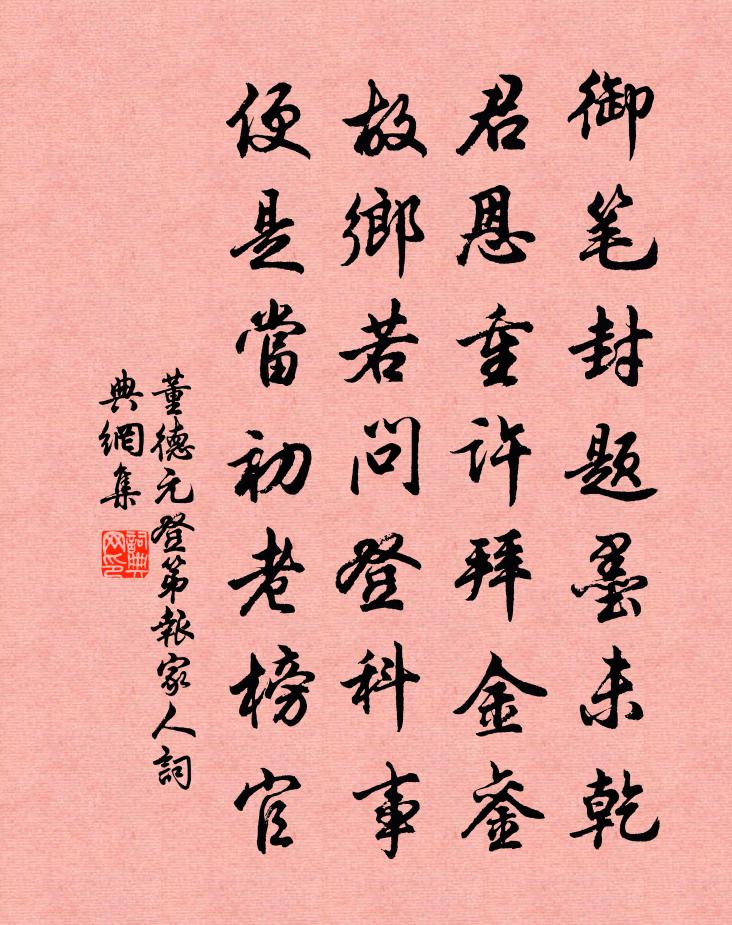 御笔封题墨未乾
君恩重许拜金銮
故鄉若问登科事
便是當初老榜官
董德元登第報家人詞
典網集
詞典网印